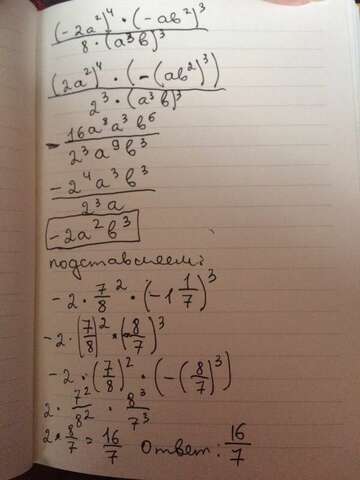 (-2a²)⁴ · (-ab²)³ / 8 · (a³b)³
(2a²)⁴ · (-(ab²)³) / 2³ · (a³b)³
- 16a⁸a³b⁶ / 2³a⁹b³
-2⁴a³b³ / 2³a
-2a²b³
подставляем:
-2 · 7/8² · (-1 1/7)³
-2 · (7/8)² · (-8/7)³
-2 · (7/8)² · (-(8/7)³)
2 · 7²/8² · 8³/7³
2 · 8/7 = 16/7 Ответ: 16/7